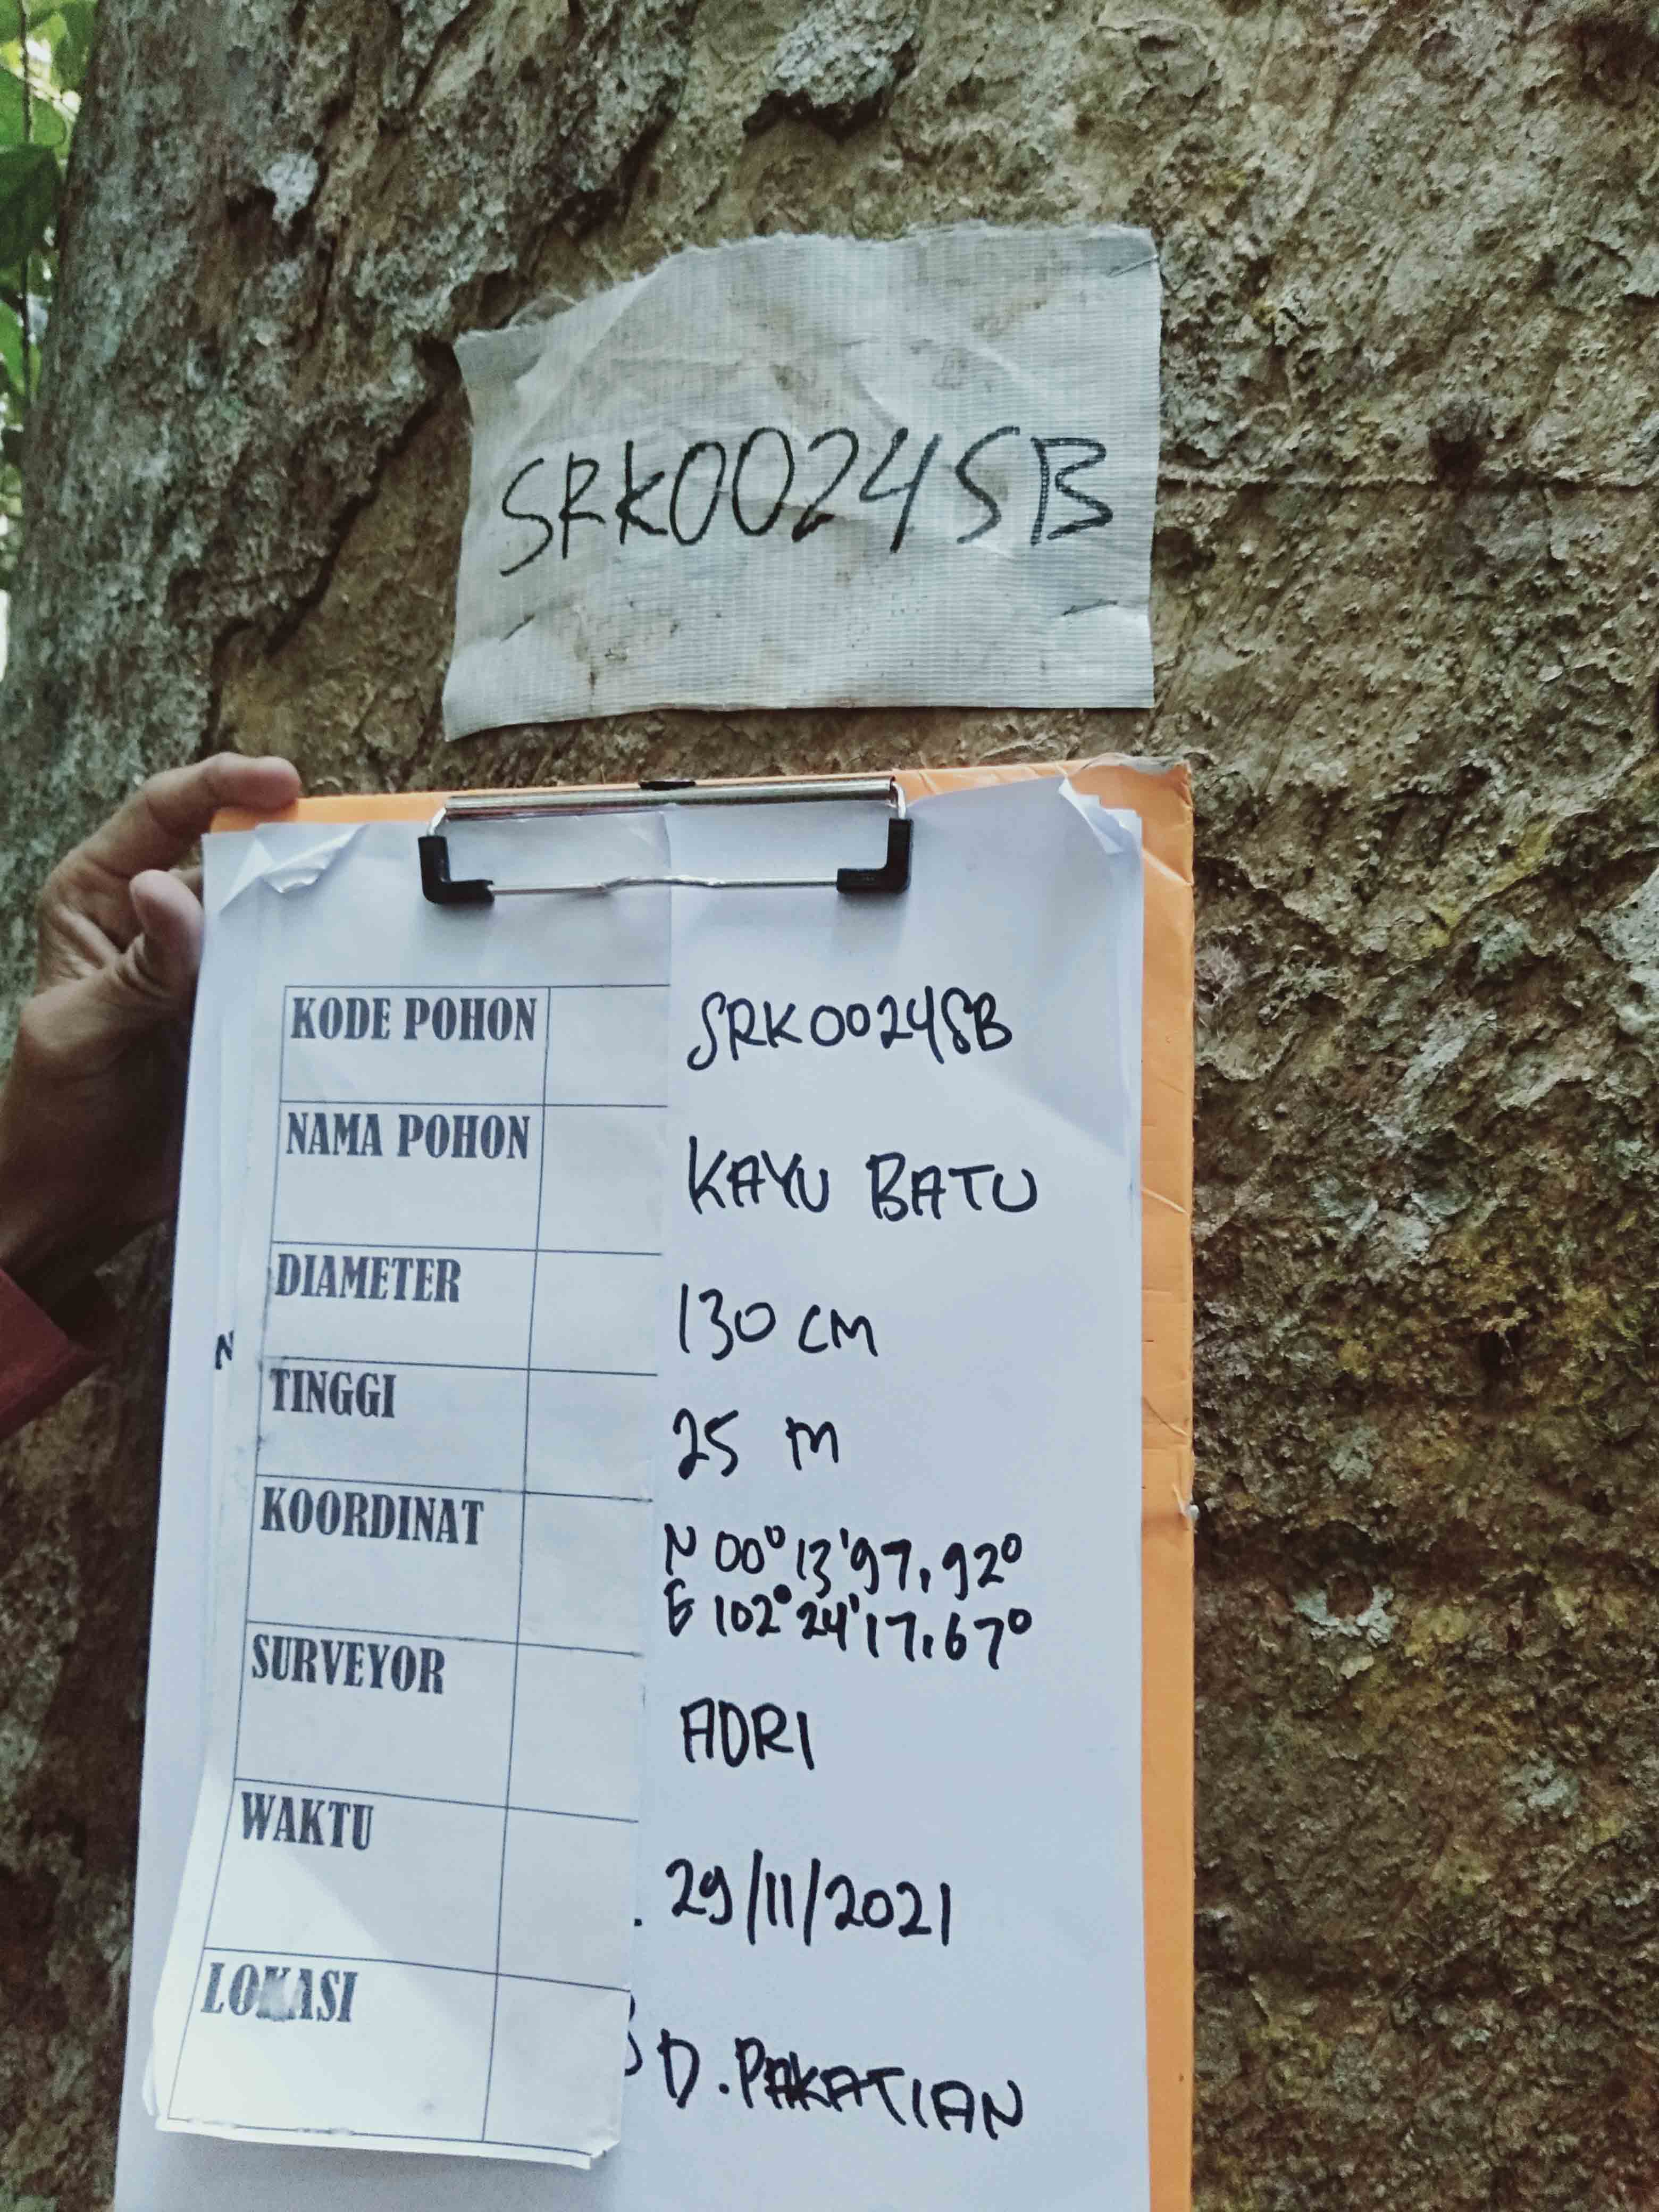 SRK0024SB
KODE POHON SRK0024SB
NAMA POHON KAYU BATU
DIAMETER 130 CM
TINGGI 25 M
KOORDINAT N 00° 13' 97,92°
E 102° 24' 17,67°
SURVEYOR ADRI
WAKTU 29/11/2021
LOKASI D.PAKATIAN
N